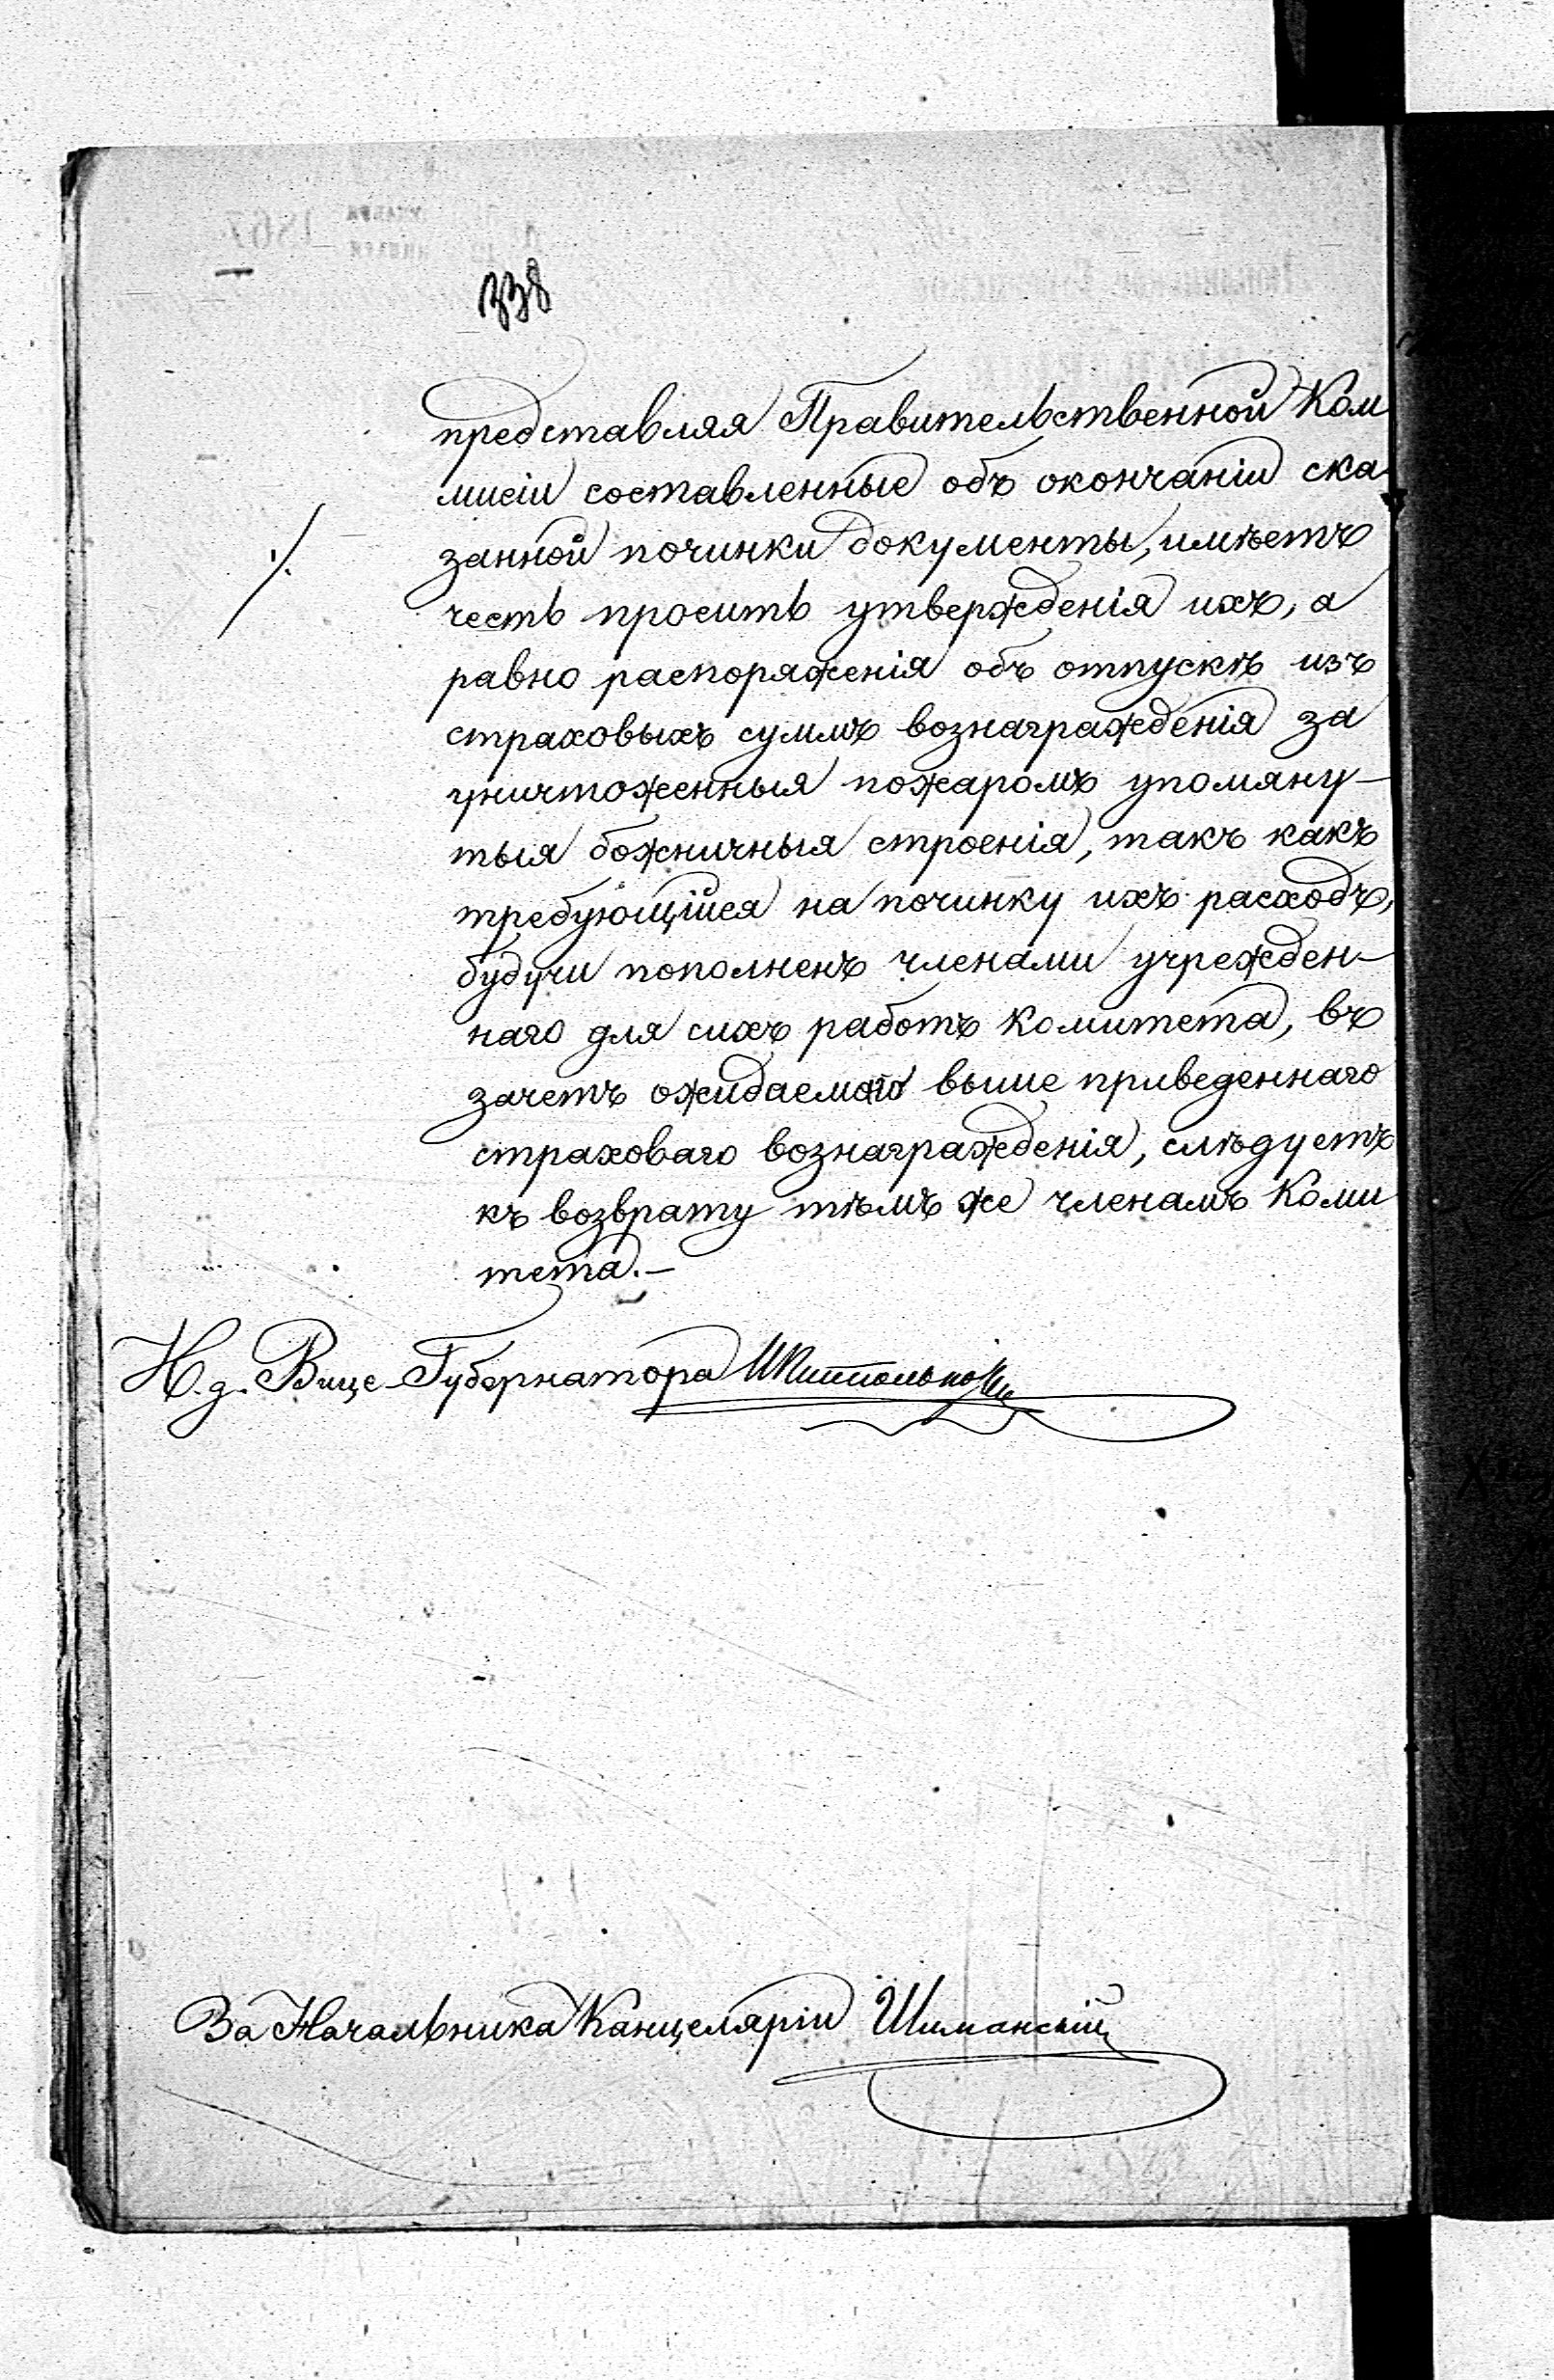 338
представляя Правительственной Ком
мисіи составленные объ окончаніи ска
занной починки документы, имѣетъ
честь просить утвержденія ихъ, а
равно распоряженія объ отпускѣ изъ
страховыхъ суммъ вознагражденія за
уничтоженныя пожаромъ упомяну-
тыя божничныя строенія, такъ какъ
требующійся на починку ихъ расходъ,
будучи пополненъ членами учрежден-
наго для сихъ работъ Комитета, въ
зачетъ ожидаемаго выше приведеннаго
страховаго вознагражденія, слѣдуетъ
къ возврату тѣмъ же членамъ Коми
тета.-
И. д. Вице-Губернатора
За Начальника Канцеляріи Шиманскій